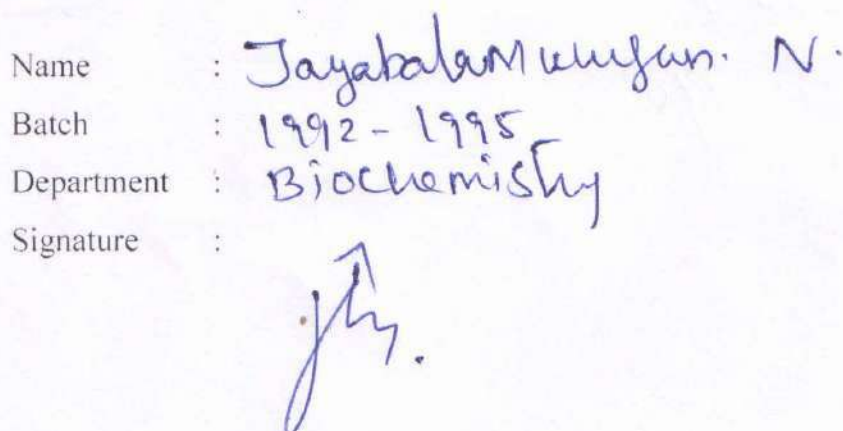 Name : JayabalaMurugan. N.
Batch : 1992 - 1995
Department : Biochemistry
Signature :